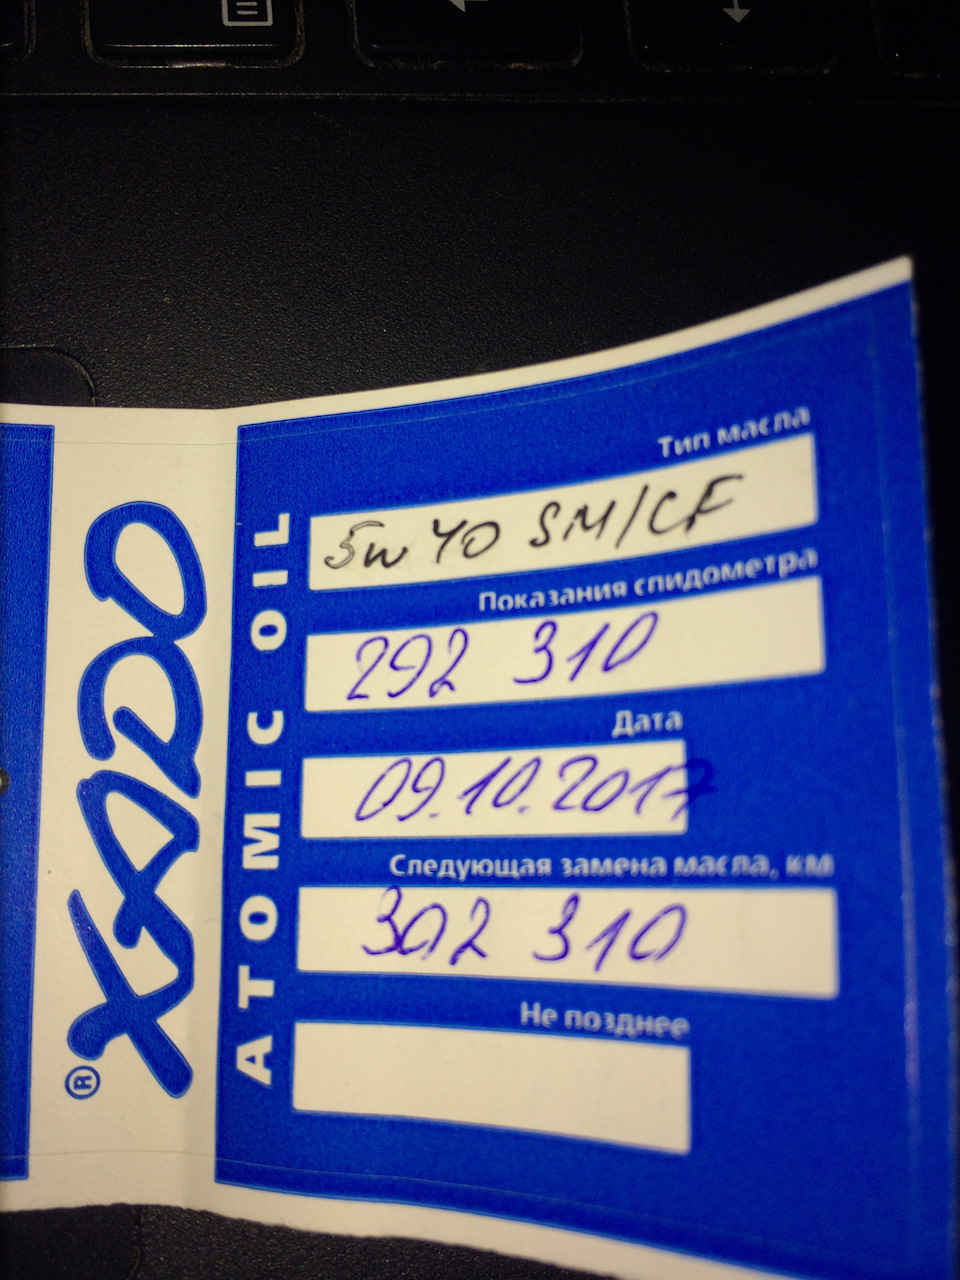 XADO®
ATOMIC OIL
Тип масла
5w40 SM/CF
Показания спидометра
292 310
Дата
09.10.2017
Следующая замена масла, км
302 310
Не позднее